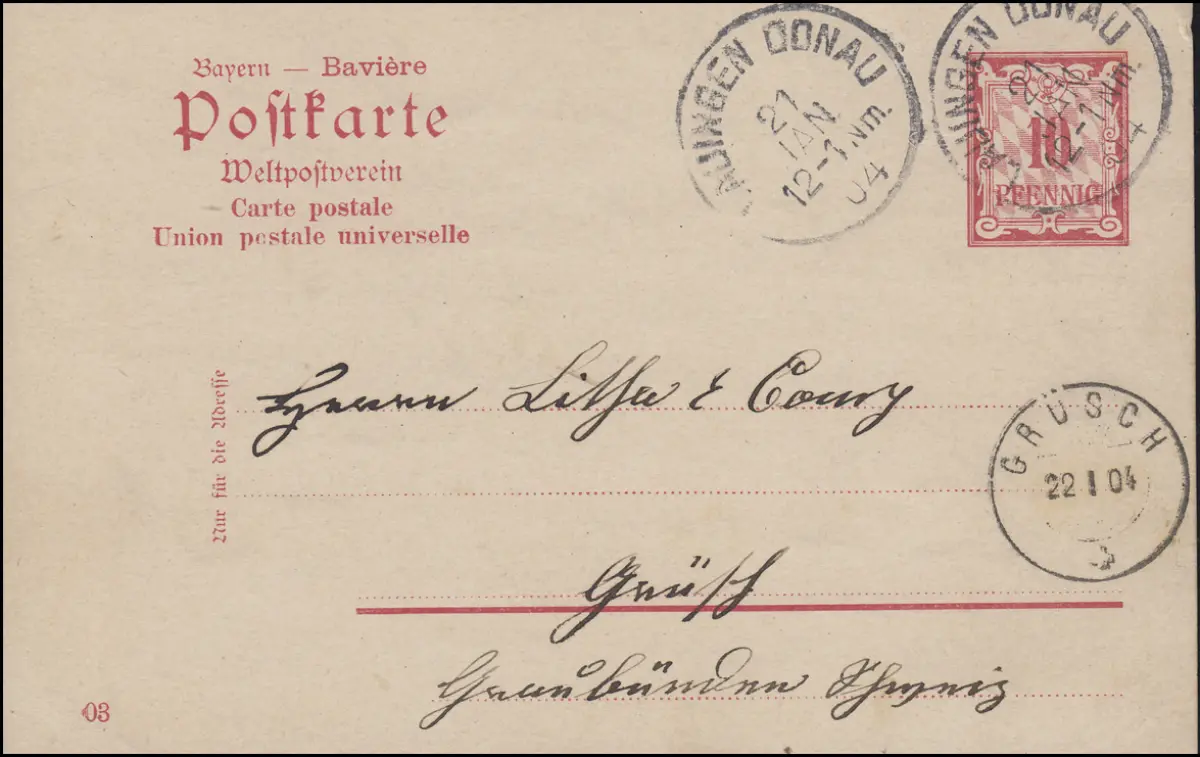 Bayern — Bavière
Postkarte
Weltpostverein
Carte postale
Union postale universelle
AUINGEN DONAU
21
JAN
12-1 Nm.
04
AUINGEN DONAU
21
JAN
12-1 Nm.
04
10
PFENNIG
Nur für die Adresse
Herren Litha & Comp
GRÜSCH
22 I 04
Grüsch
Graubünden Schweiz
03